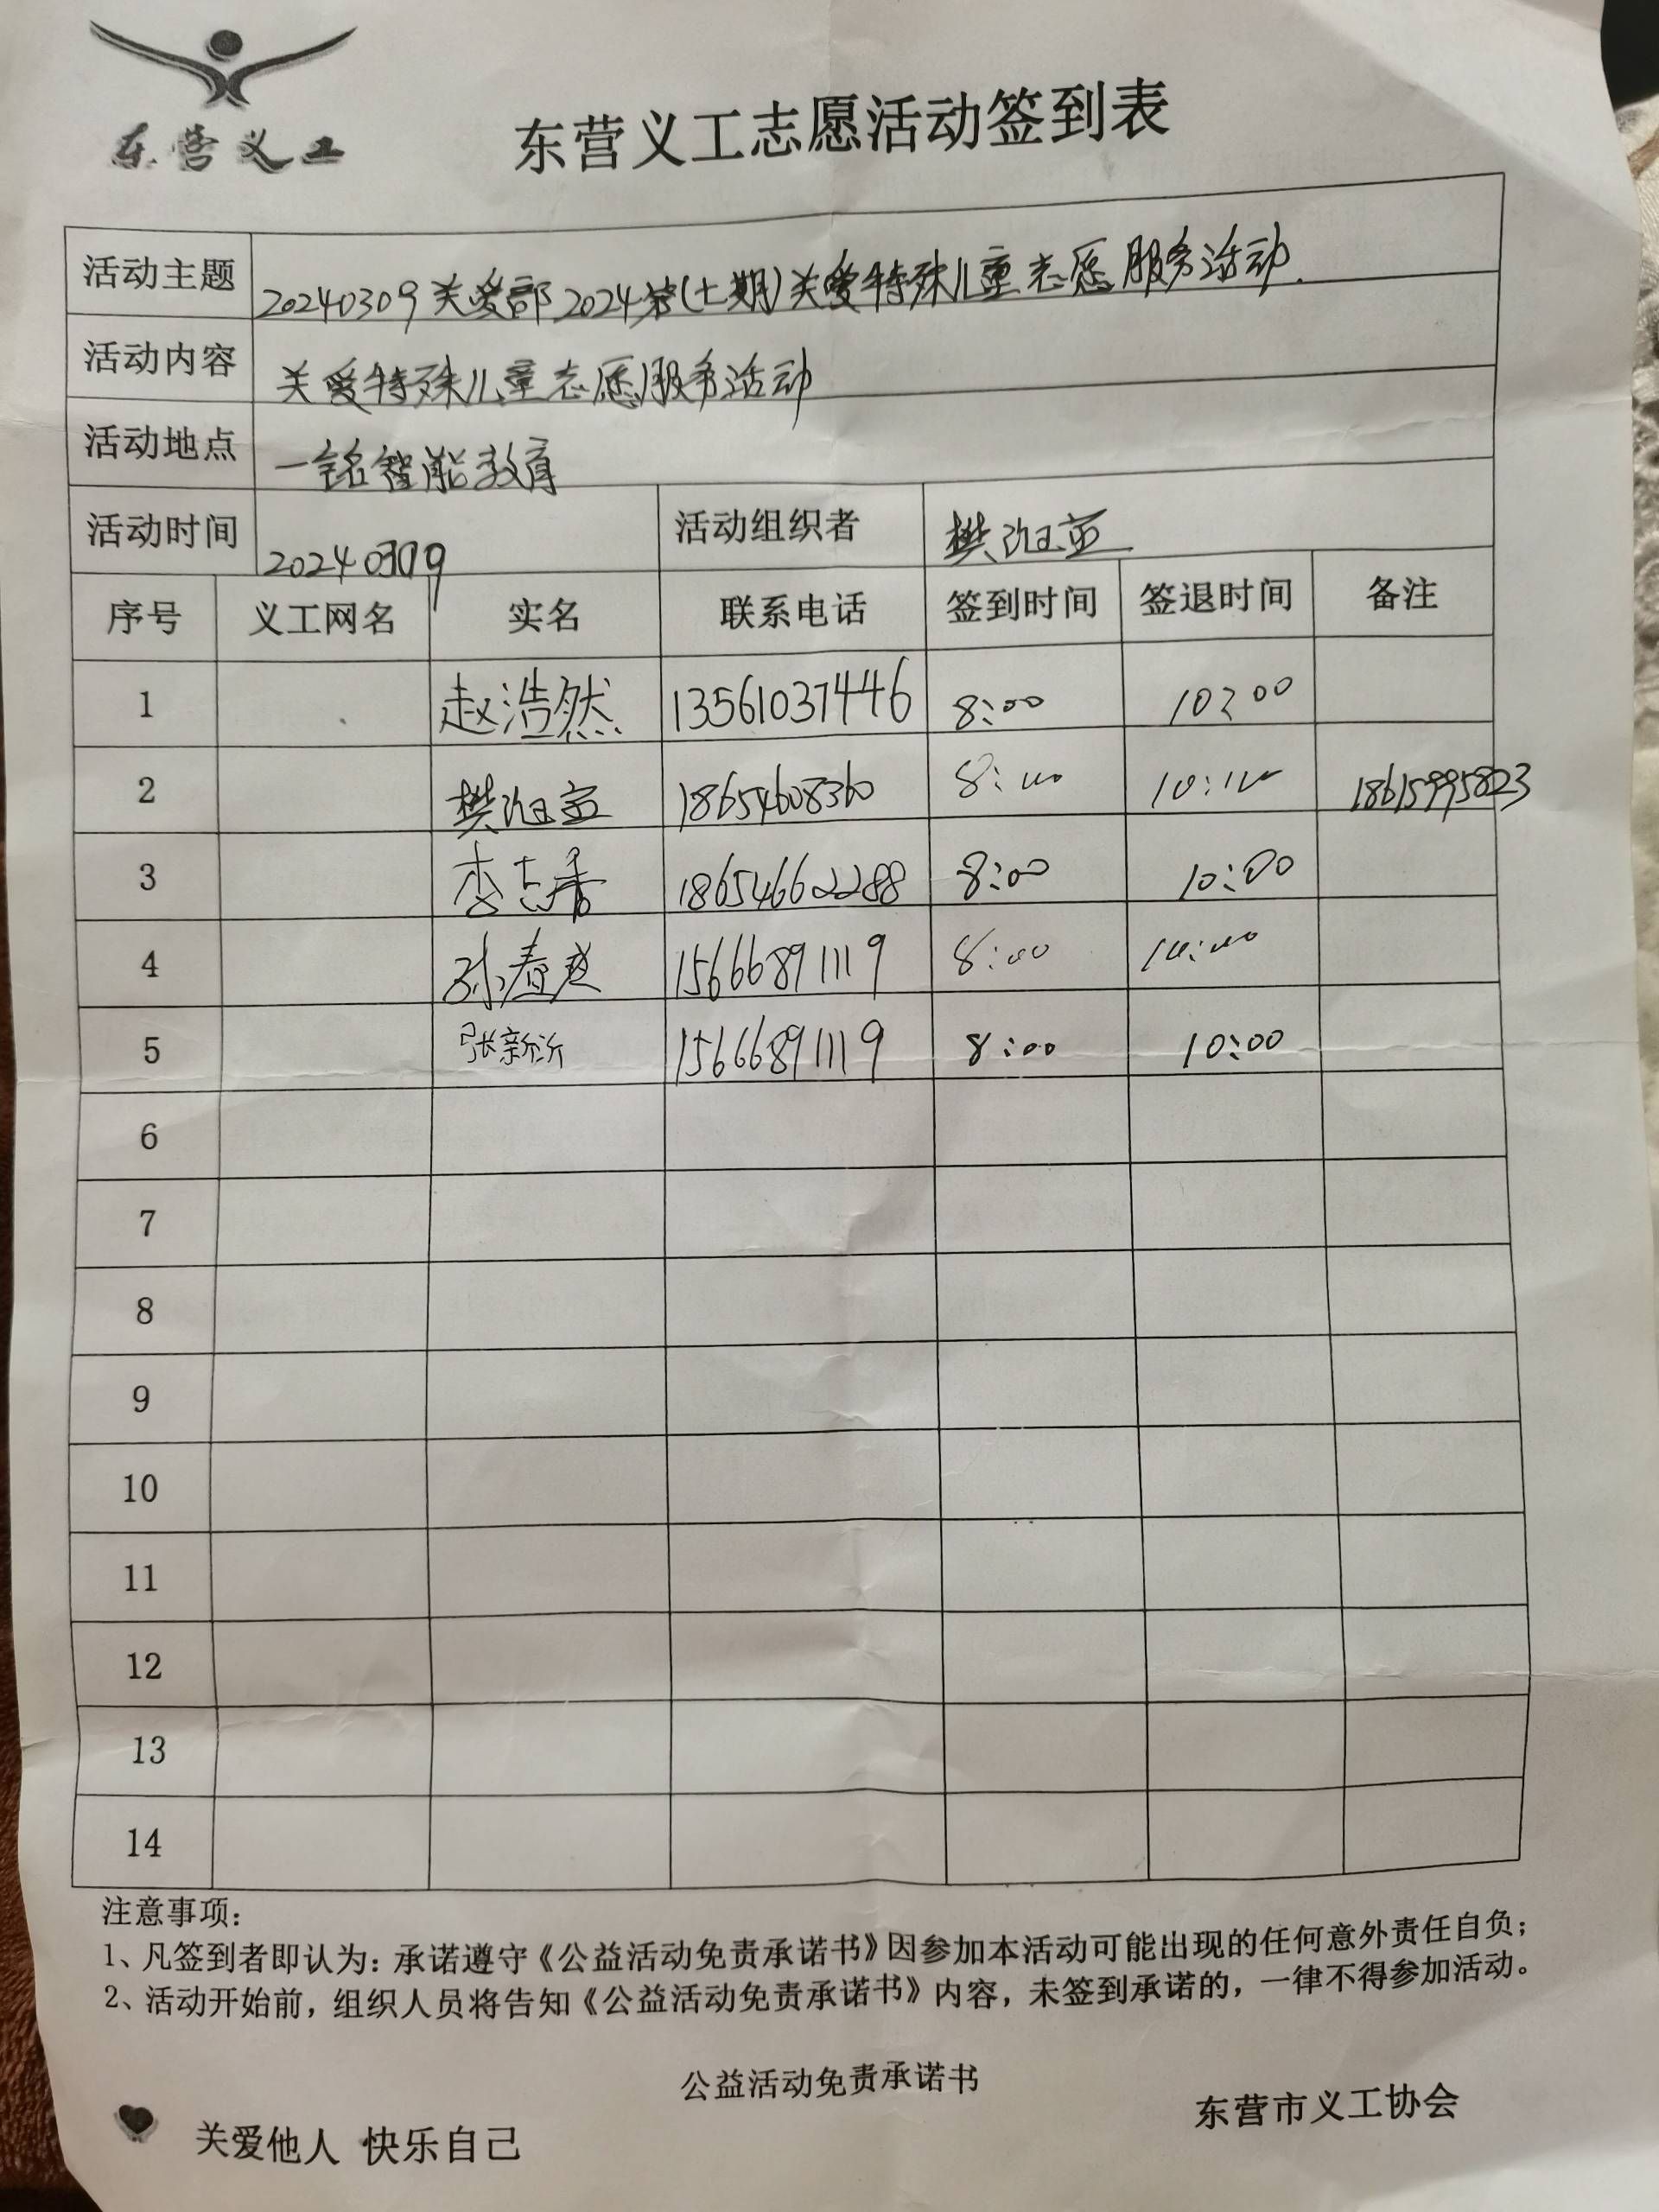 东营义工
东营义工志愿活动签到表
活动主题 20240309关爱部2024第(七期)关爱特殊儿童志愿服务活动.
活动内容 关爱特殊儿童志愿服务活动
活动地点 一铭智能教育
活动时间 20240309 活动组织者 樊
序号 义工网名 实名 联系电话 签到时间 签退时间 备注
1 赵浩然 13561037446 8:00 10:00
2 樊 18654608360 8:00 10:00 18615995823
3 李志香 18654662288 8:00 10:00
4 孙春 15666891119 8:00 10:00
5 张新沂 15666891119 8:00 10:00
6
7
8
9
10
11
12
13
14
注意事项:
1、凡签到者即认为:承诺遵守《公益活动免责承诺书》因参加本活动可能出现的任何意外责任自负;
2、活动开始前,组织人员将告知《公益活动免责承诺书》内容,未签到承诺的,一律不得参加活动。
公益活动免责承诺书
关爱他人 快乐自己 东营市义工协会